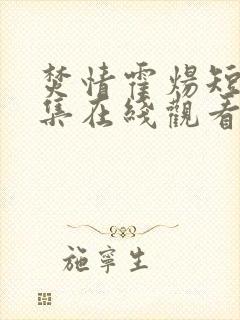 焚情霍煬短
集在綫觀看
施寧生